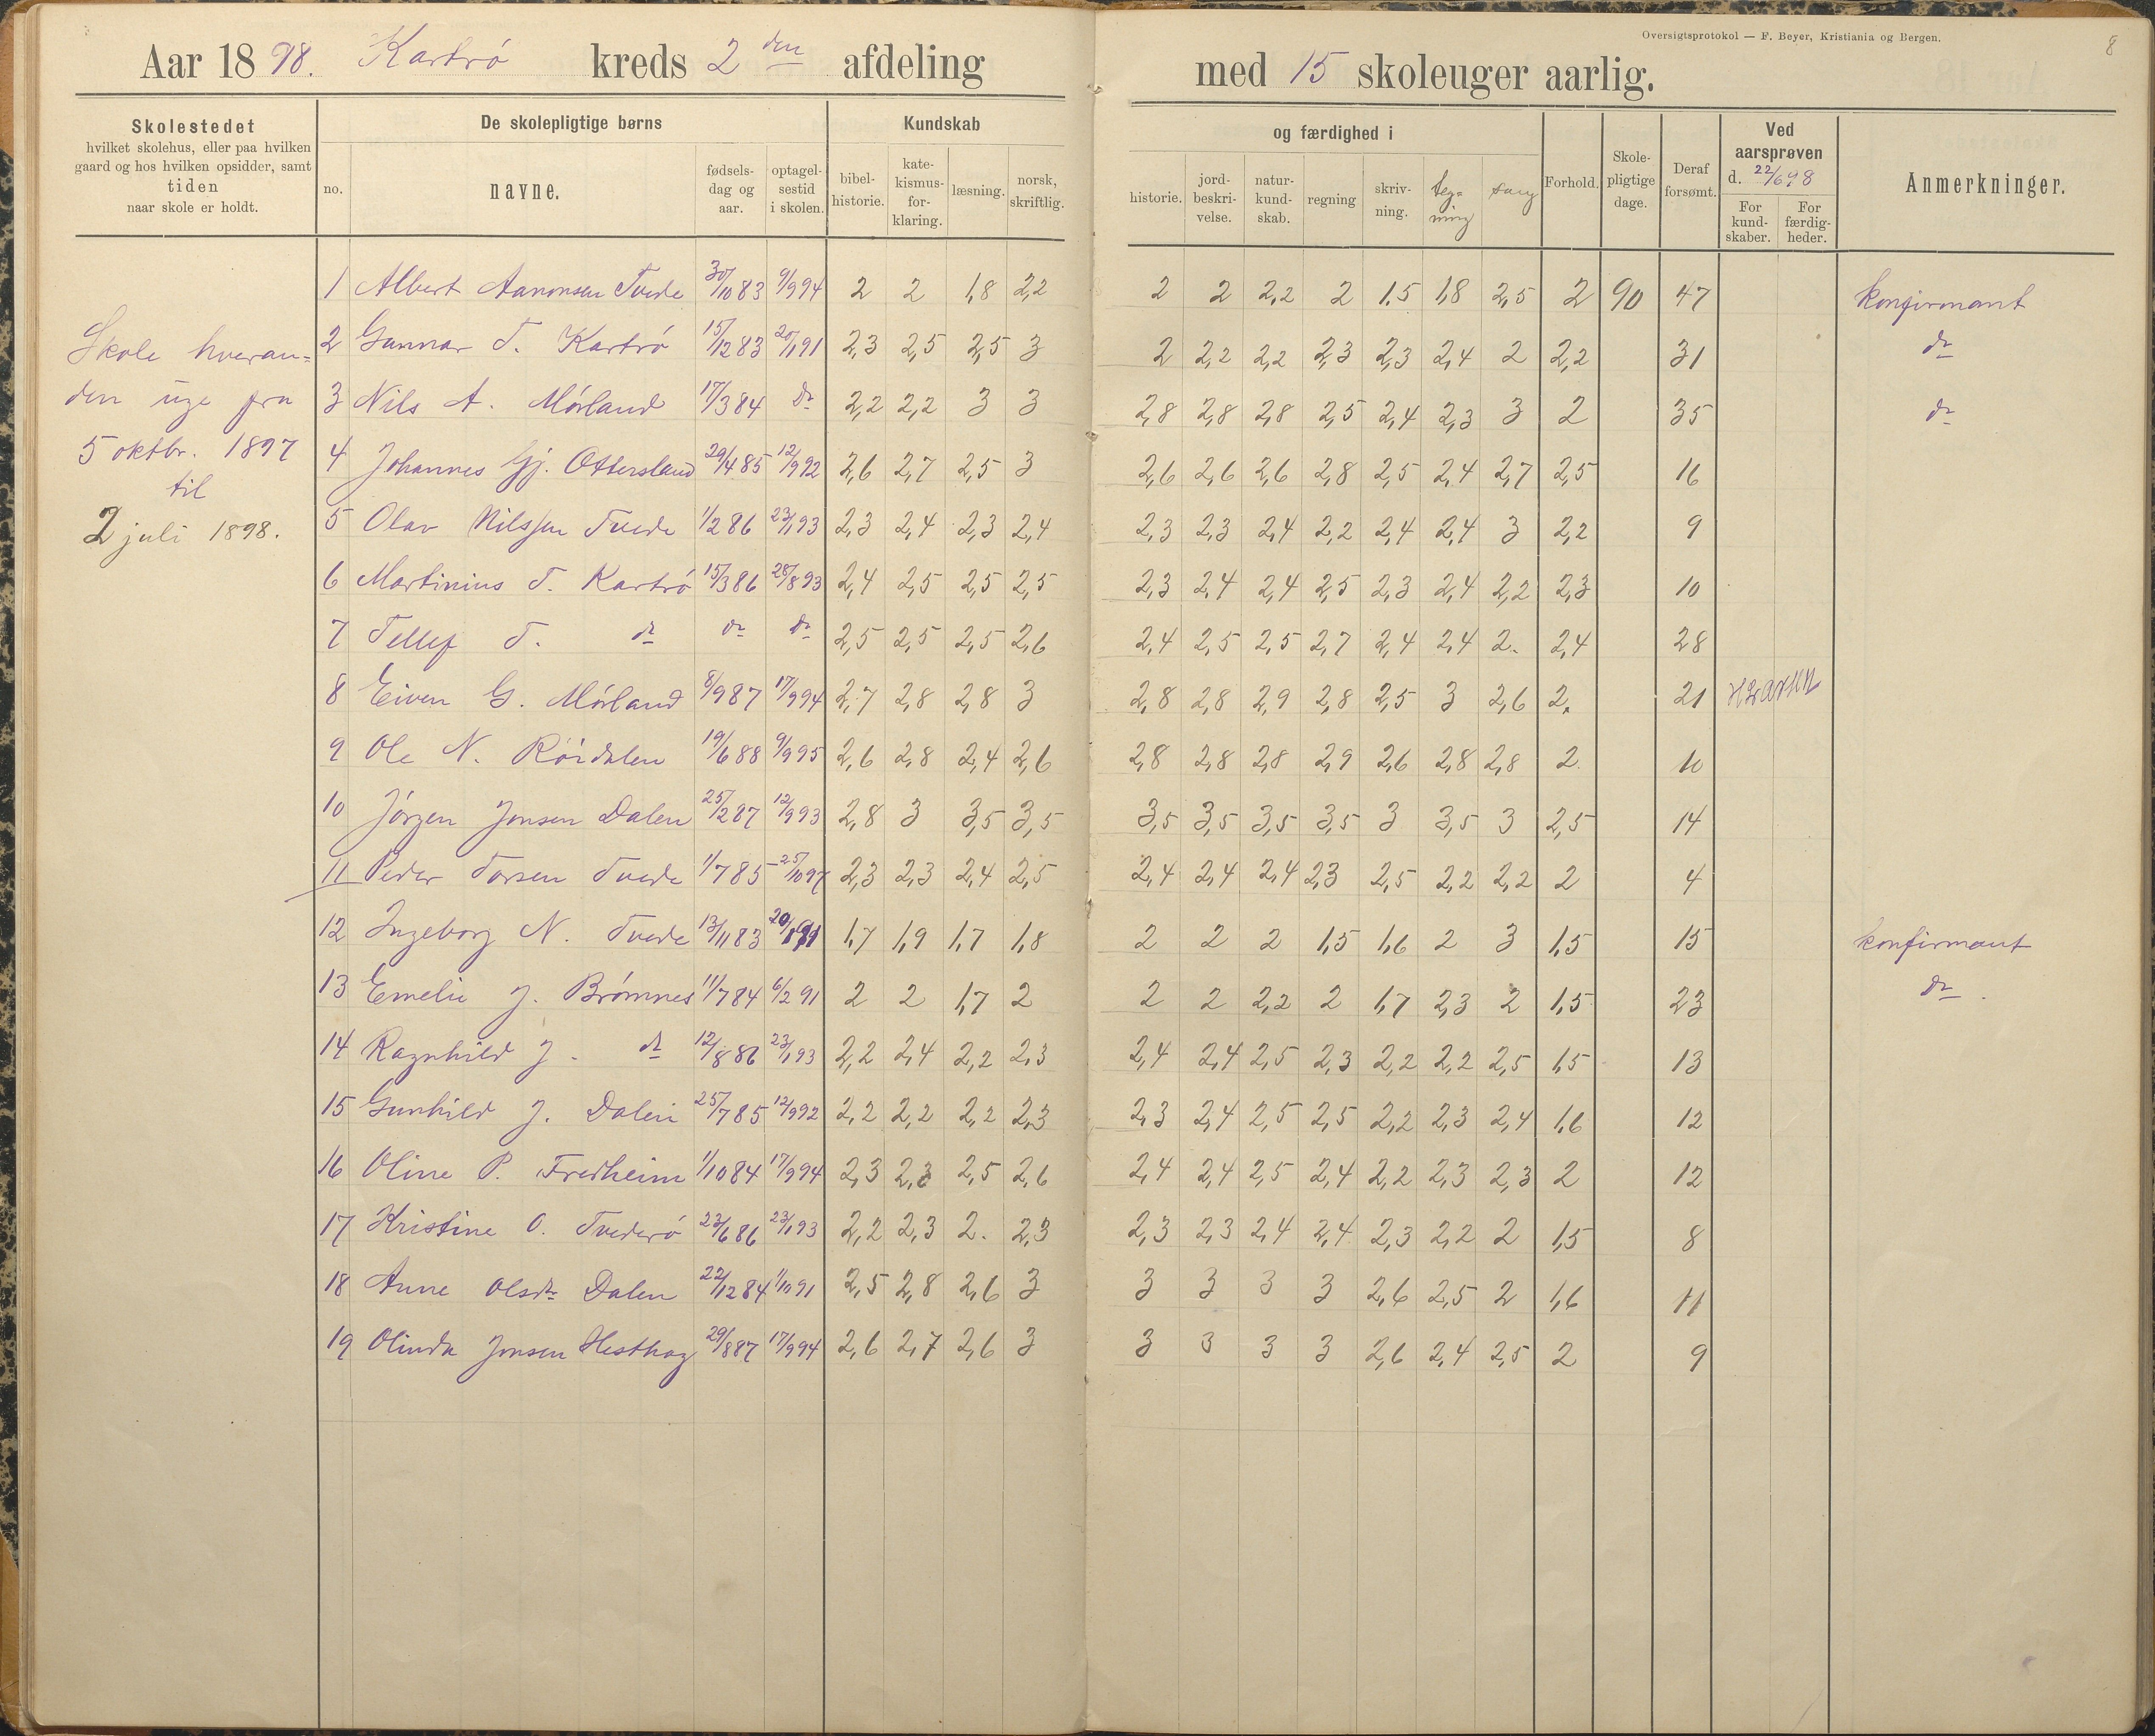 Oversigtsprotokol — F. Beyer, Kristiania og Bergen.
8
Aar 1898. Kartrø kreds 2den afdeling med 15 skoleuger aarlig.
Skolestedet
hvilket skolehus, eller paa hvilken
gaard og hos hvilken opsidder, samt
tiden
naar skole er holdt.
De skolepligtige børns
no. navne. fødsels-dag og aar. optagel-sestid i skolen.
Kundskab og færdighed i
bibel-historie. kate-kismus-for-klaring. læsning. norsk, skriftlig. historie. jord-beskri-velse. natur-kund-skab. regning skriv-ning. teg-ning sang
Forhold. Skole-pligtige dage. Deraf forsømt.
Ved aarsprøven d. 22/6 98
For kund-skaber. For færdig-heder.
Anmerkninger.
Skole hveran-
den uge fra
5 oktbr. 1897
til
2 juli 1898.
1 Albert Aanonsen Tvede 30/10 83 9/9 94 2 2 1,8 2,2 2 2 2,2 2 1,5 1,8 2,5 2 90 47 konfirmant
2 Gunnar T. Kartrø 15/12 83 20/1 91 2,3 2,5 2,5 3 2 2,2 2,2 2,3 2,3 2,4 2 2,2 31 do
3 Nils A. Mørland 17/3 84 do 2,2 2,2 3 3 2,8 2,8 2,8 2,5 2,4 2,3 3 2 35 do
4 Johannes Gj. Ottersland 29/4 85 12/9 92 2,6 2,7 2,5 3 2,6 2,6 2,6 2,8 2,5 2,4 2,7 2,5 16
5 Olav Nilssen Tvede 1/2 86 23/1 93 2,3 2,4 2,3 2,4 2,3 2,3 2,4 2,2 2,4 2,4 3 2,2 9
6 Martinius T. Kartrø 15/3 86 28/8 93 2,4 2,5 2,5 2,5 2,3 2,4 2,4 2,5 2,3 2,4 2,2 2,3 10
7 Tellef T. do do do 2,5 2,5 2,5 2,6 2,4 2,5 2,5 2,7 2,4 2,4 2. 2,4 28
8 Eiven G. Mørland 8/9 87 17/9 94 2,7 2,8 2,8 3 2,8 2,8 2,9 2,8 2,5 3 2,6 2. 21
9 Ole N. Røidalen 19/6 88 9/9 95 2,6 2,8 2,4 2,6 2,8 2,8 2,8 2,9 2,6 2,8 2,8 2. 10
10 Jørgen Jensen Dalen 25/2 87 12/9 93 2,8 3 3,5 3,5 3,5 3,5 3,5 3,5 3 3,5 3 2,5 14
11 Peder Torsen Tvede 1/7 85 25/10 97 2,3 2,3 2,4 2,5 2,4 2,4 2,4 2,3 2,5 2,2 2,2 2 4
12 Ingeborg N. Tvede 13/11 83 20/1 91 1,7 1,9 1,7 1,8 2 2 2 1,5 1,6 2 3 1,5 15 konfirmant
13 Emelie J. Brømnes 11/7 84 6/2 91 2 2 1,7 2 2 2 2,2 2 1,7 2,3 2 1,5 23 do
14 Ragnhild J. do 12/8 86 23/1 93 2,2 2,4 2,2 2,3 2,4 2,4 2,5 2,3 2,2 2,2 2,5 1,5 13
15 Gunhild J. Dalen 25/7 85 12/9 92 2,2 2,2 2,2 2,3 2,3 2,4 2,5 2,5 2,2 2,3 2,4 1,6 12
16 Oline P. Fredheim 1/10 84 17/9 94 2,3 2,3 2,5 2,6 2,4 2,4 2,5 2,4 2,2 2,3 2,3 2 12
17 Kristine O. Tvederø 23/6 86 23/1 93 2,2 2,3 2. 2,3 2,3 2,3 2,4 2,4 2,3 2,2 2 1,5 8
18 Anne Olsdr Dalen 22/12 84 1/10 91 2,5 2,8 2,6 3 3 3 3 3 2,6 2,5 2 1,6 11
19 Olinda Jensen Hesthag 29/8 87 17/9 94 2,6 2,7 2,6 3 3 3 3 3 2,6 2,4 2,5 2 9